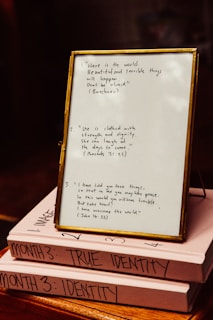 "Here is the world.
Beautiful and terrible things
will happen.
Don't be afraid"
(Buechner)
"She is clothed with
strength and dignity.
She can laugh at
the days to come."
(Proverbs 31:25)
"I have told you these things,
so that in me you may have peace.
In this world you will have trouble
But take heart!
I have overcome the world."
(John 16:33)
MONTH 3: TRUE IDENTITY
MONTH 3: IDENTITY